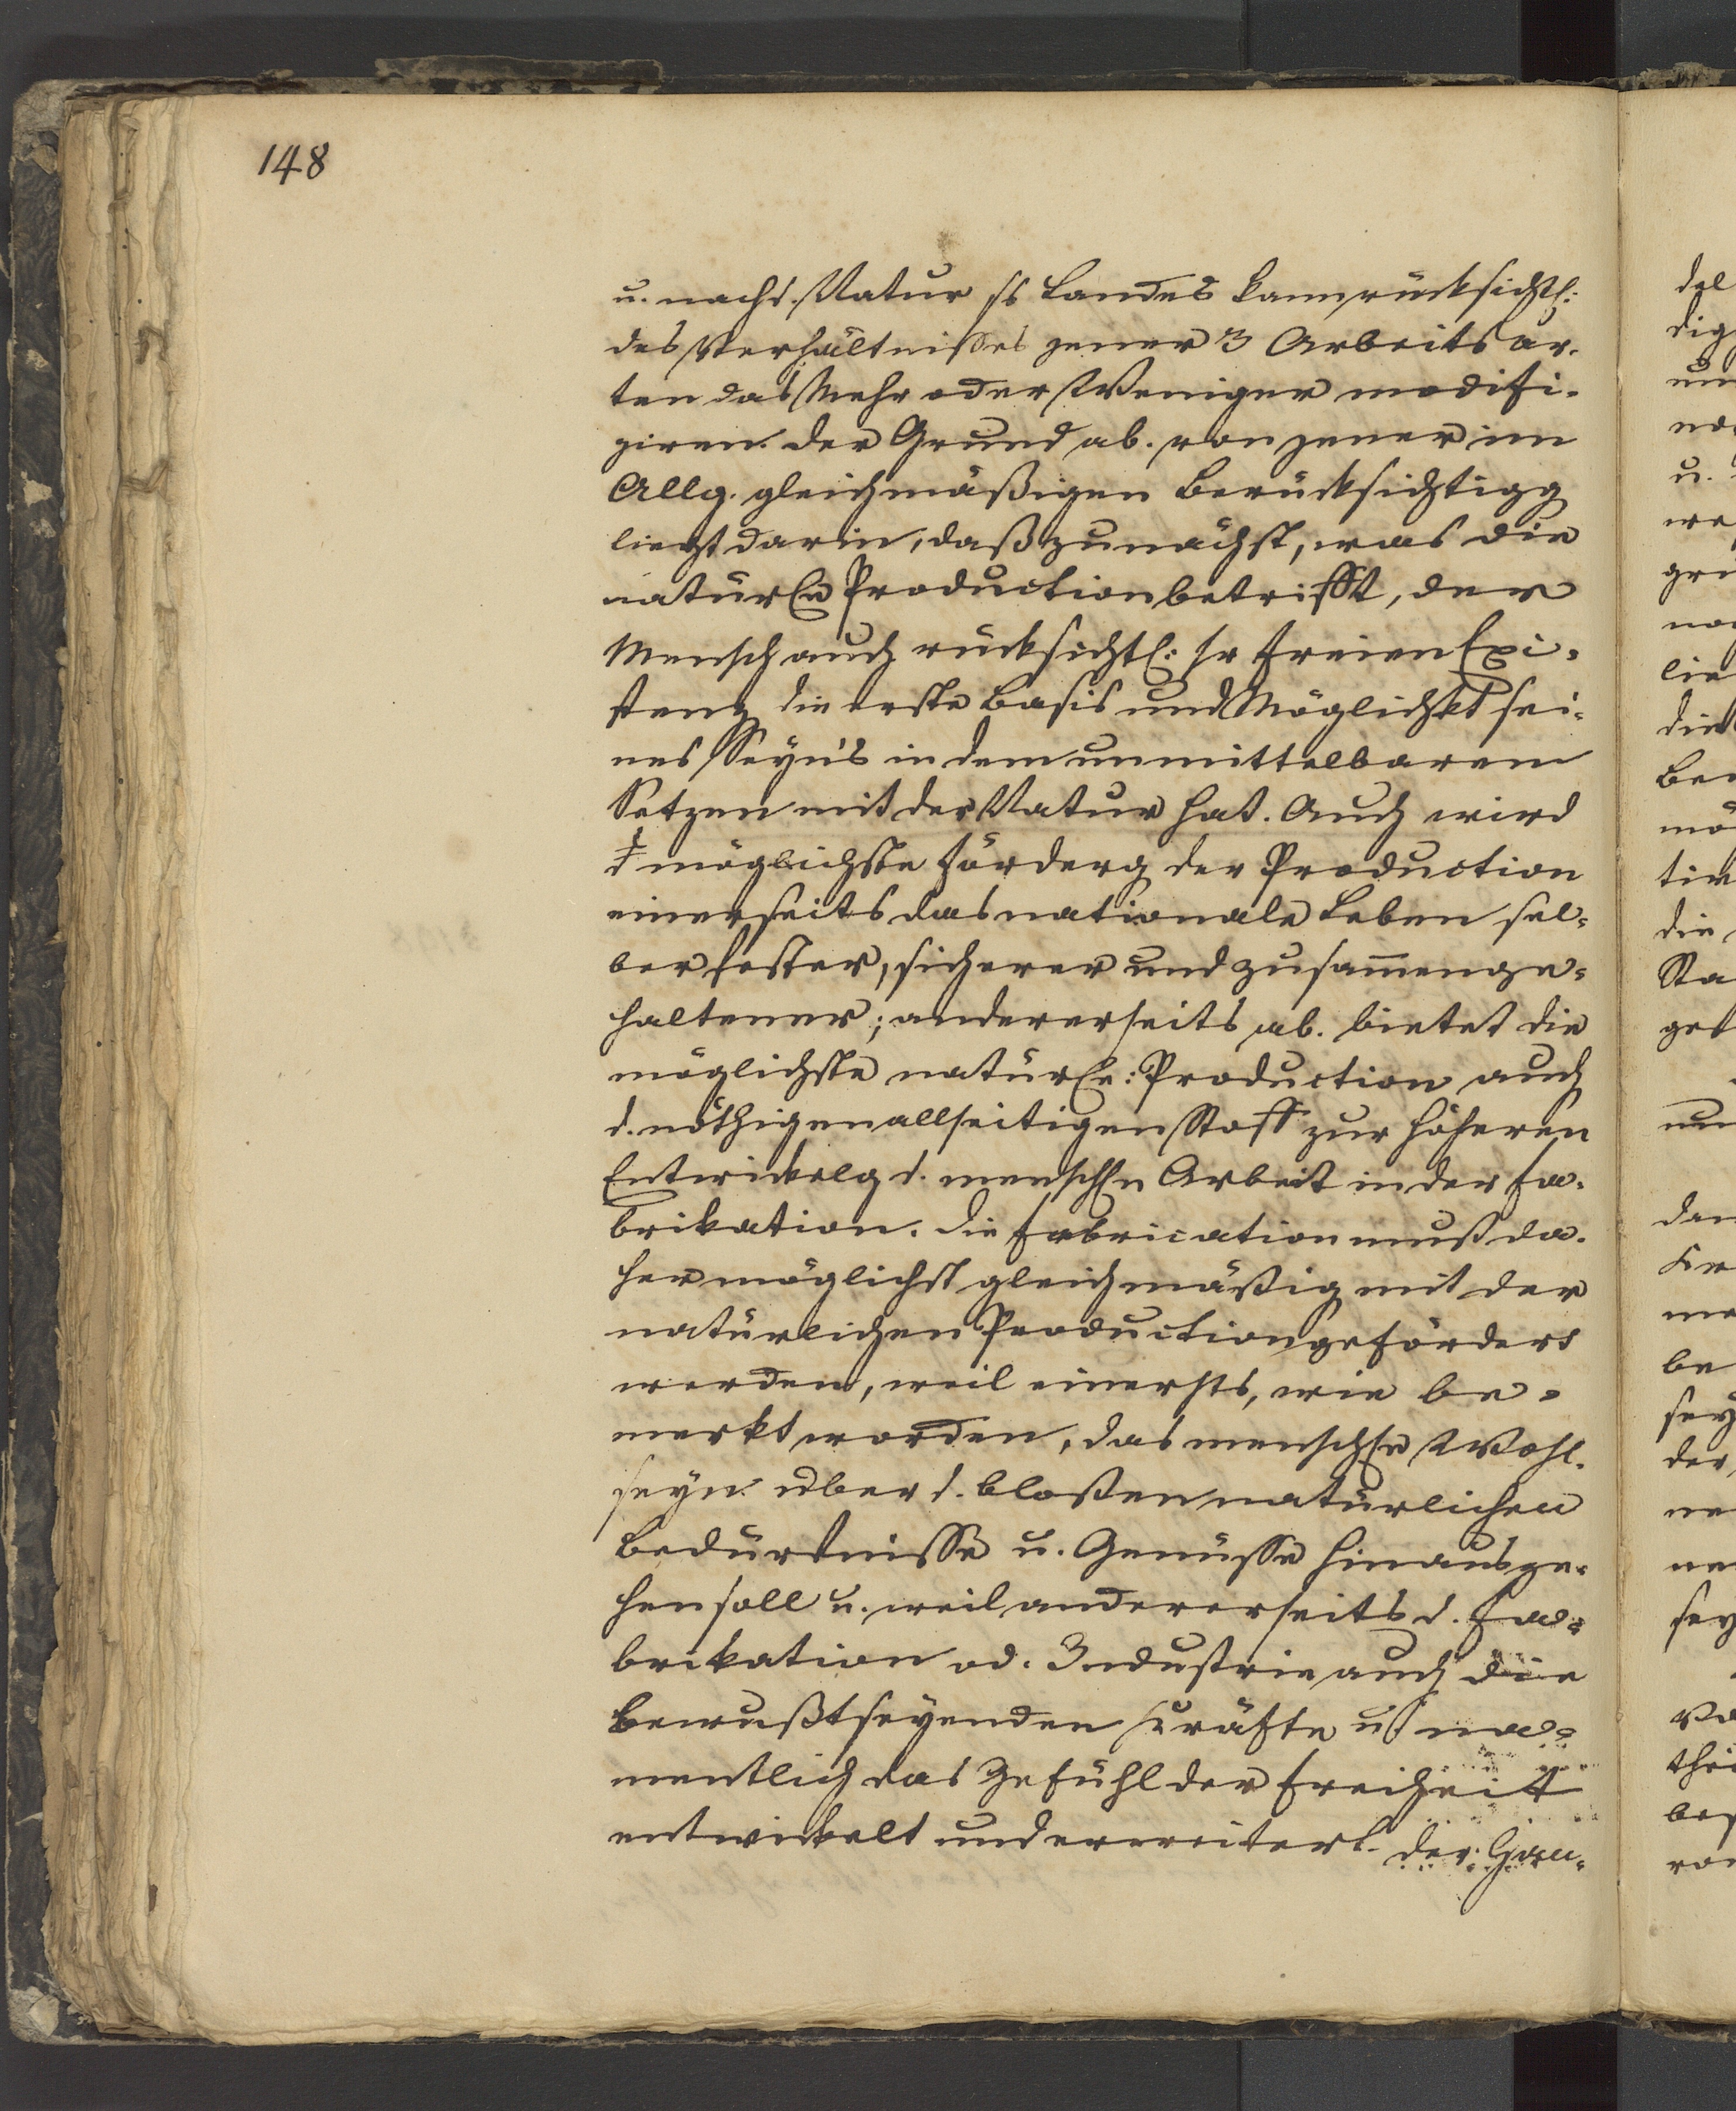 148
u. nach d. Natur ss Landes kann rücksichtl:
des Verhältnisses jener 3 Arbeitsar-
ten das Mehr oder Weniger modifi-
ziren. Der Grund ab. von jener im
Allg. gleichmäßigen Berücksichtigg
liegt darin, daß zunächst, was die
natürle Production betrifft, der
Mensch auch rücksichtl: sr freien Exi-
stenz die erste Basis und Möglichkt sei-
nes Seyn's in dem unmittelbaren
Setzen mit der Natur hat. Auch wird
d möglichste Förderg der Production
einerseits das nationale Leben sel-
ber fester, sicherer und zusam̄enge-
haltener; andererseits ab. bietet die
möglichste natürle: Production auch
d. nöthigen allseitigen Stoff zur höheren
Entwickelg d. menschln Arbeit in der Fa-
brikation. Die Fabrication muß da-
her möglichst gleichmäßig mit der
natürlichen Production gefördert
werden, weil einersts, wie be-
merkt worden, das menschle Wohl-
seyn über d. bloßen natürlichen
Bedürfnisse u. Genüsse hinausge-
hen soll u. weil andererseits d. Fa-
brikation od. Industrie auch die
bewußtseyenden Kräfte u na-
mentlich das Gefühl der Freiheit
entwickelt und erweitert. Der Han-